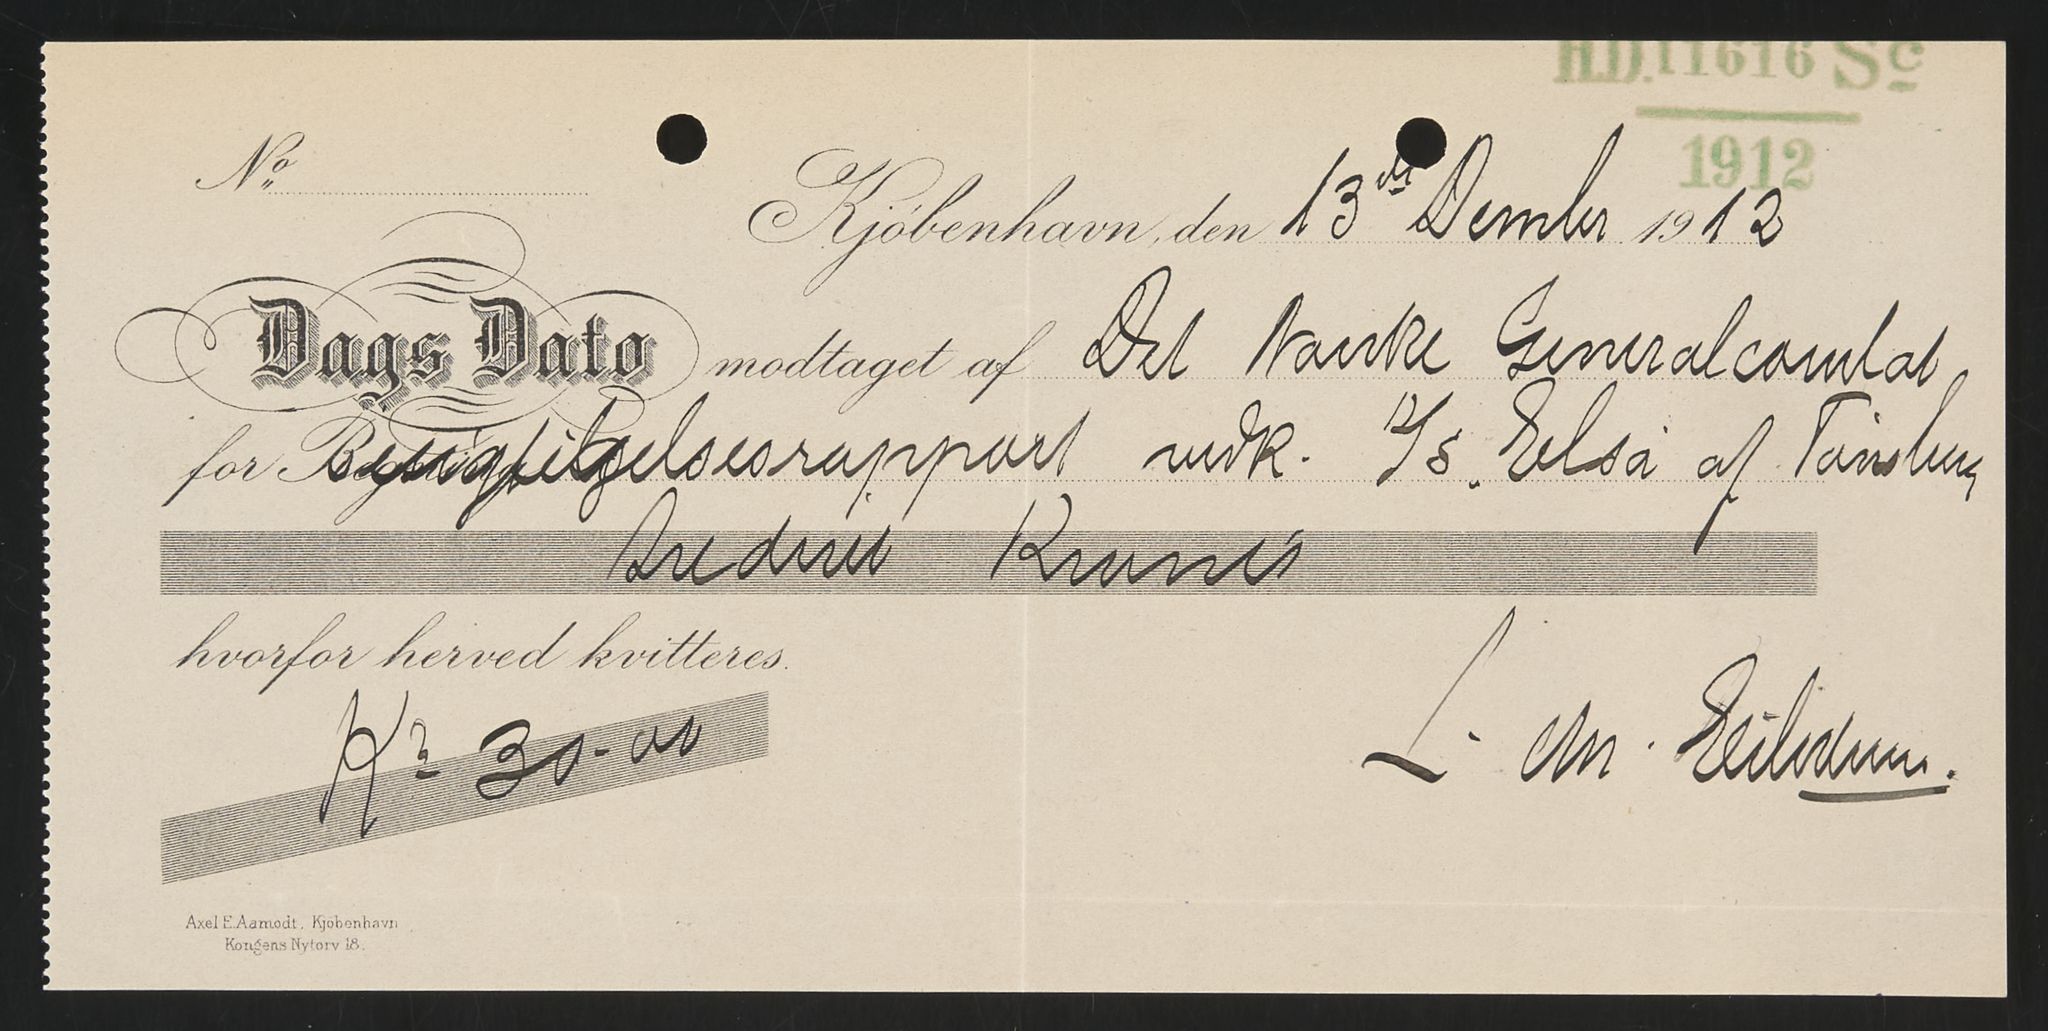 H.D. 11616 Sc
1912
No
Kjöbenhavn, den 13de Dember 1912
Dags Dato modtaget af Det Norske Generalconsulat
for Besigtigelsesrapport vedk. D/S. Eelsa af Tönsberg
Tredive Kroner
hvorfor herved kvitteres.
Kr 30-00
L. M.
Axel E. Aamodt, Kjöbenhavn
Kongens Nytorv 18.